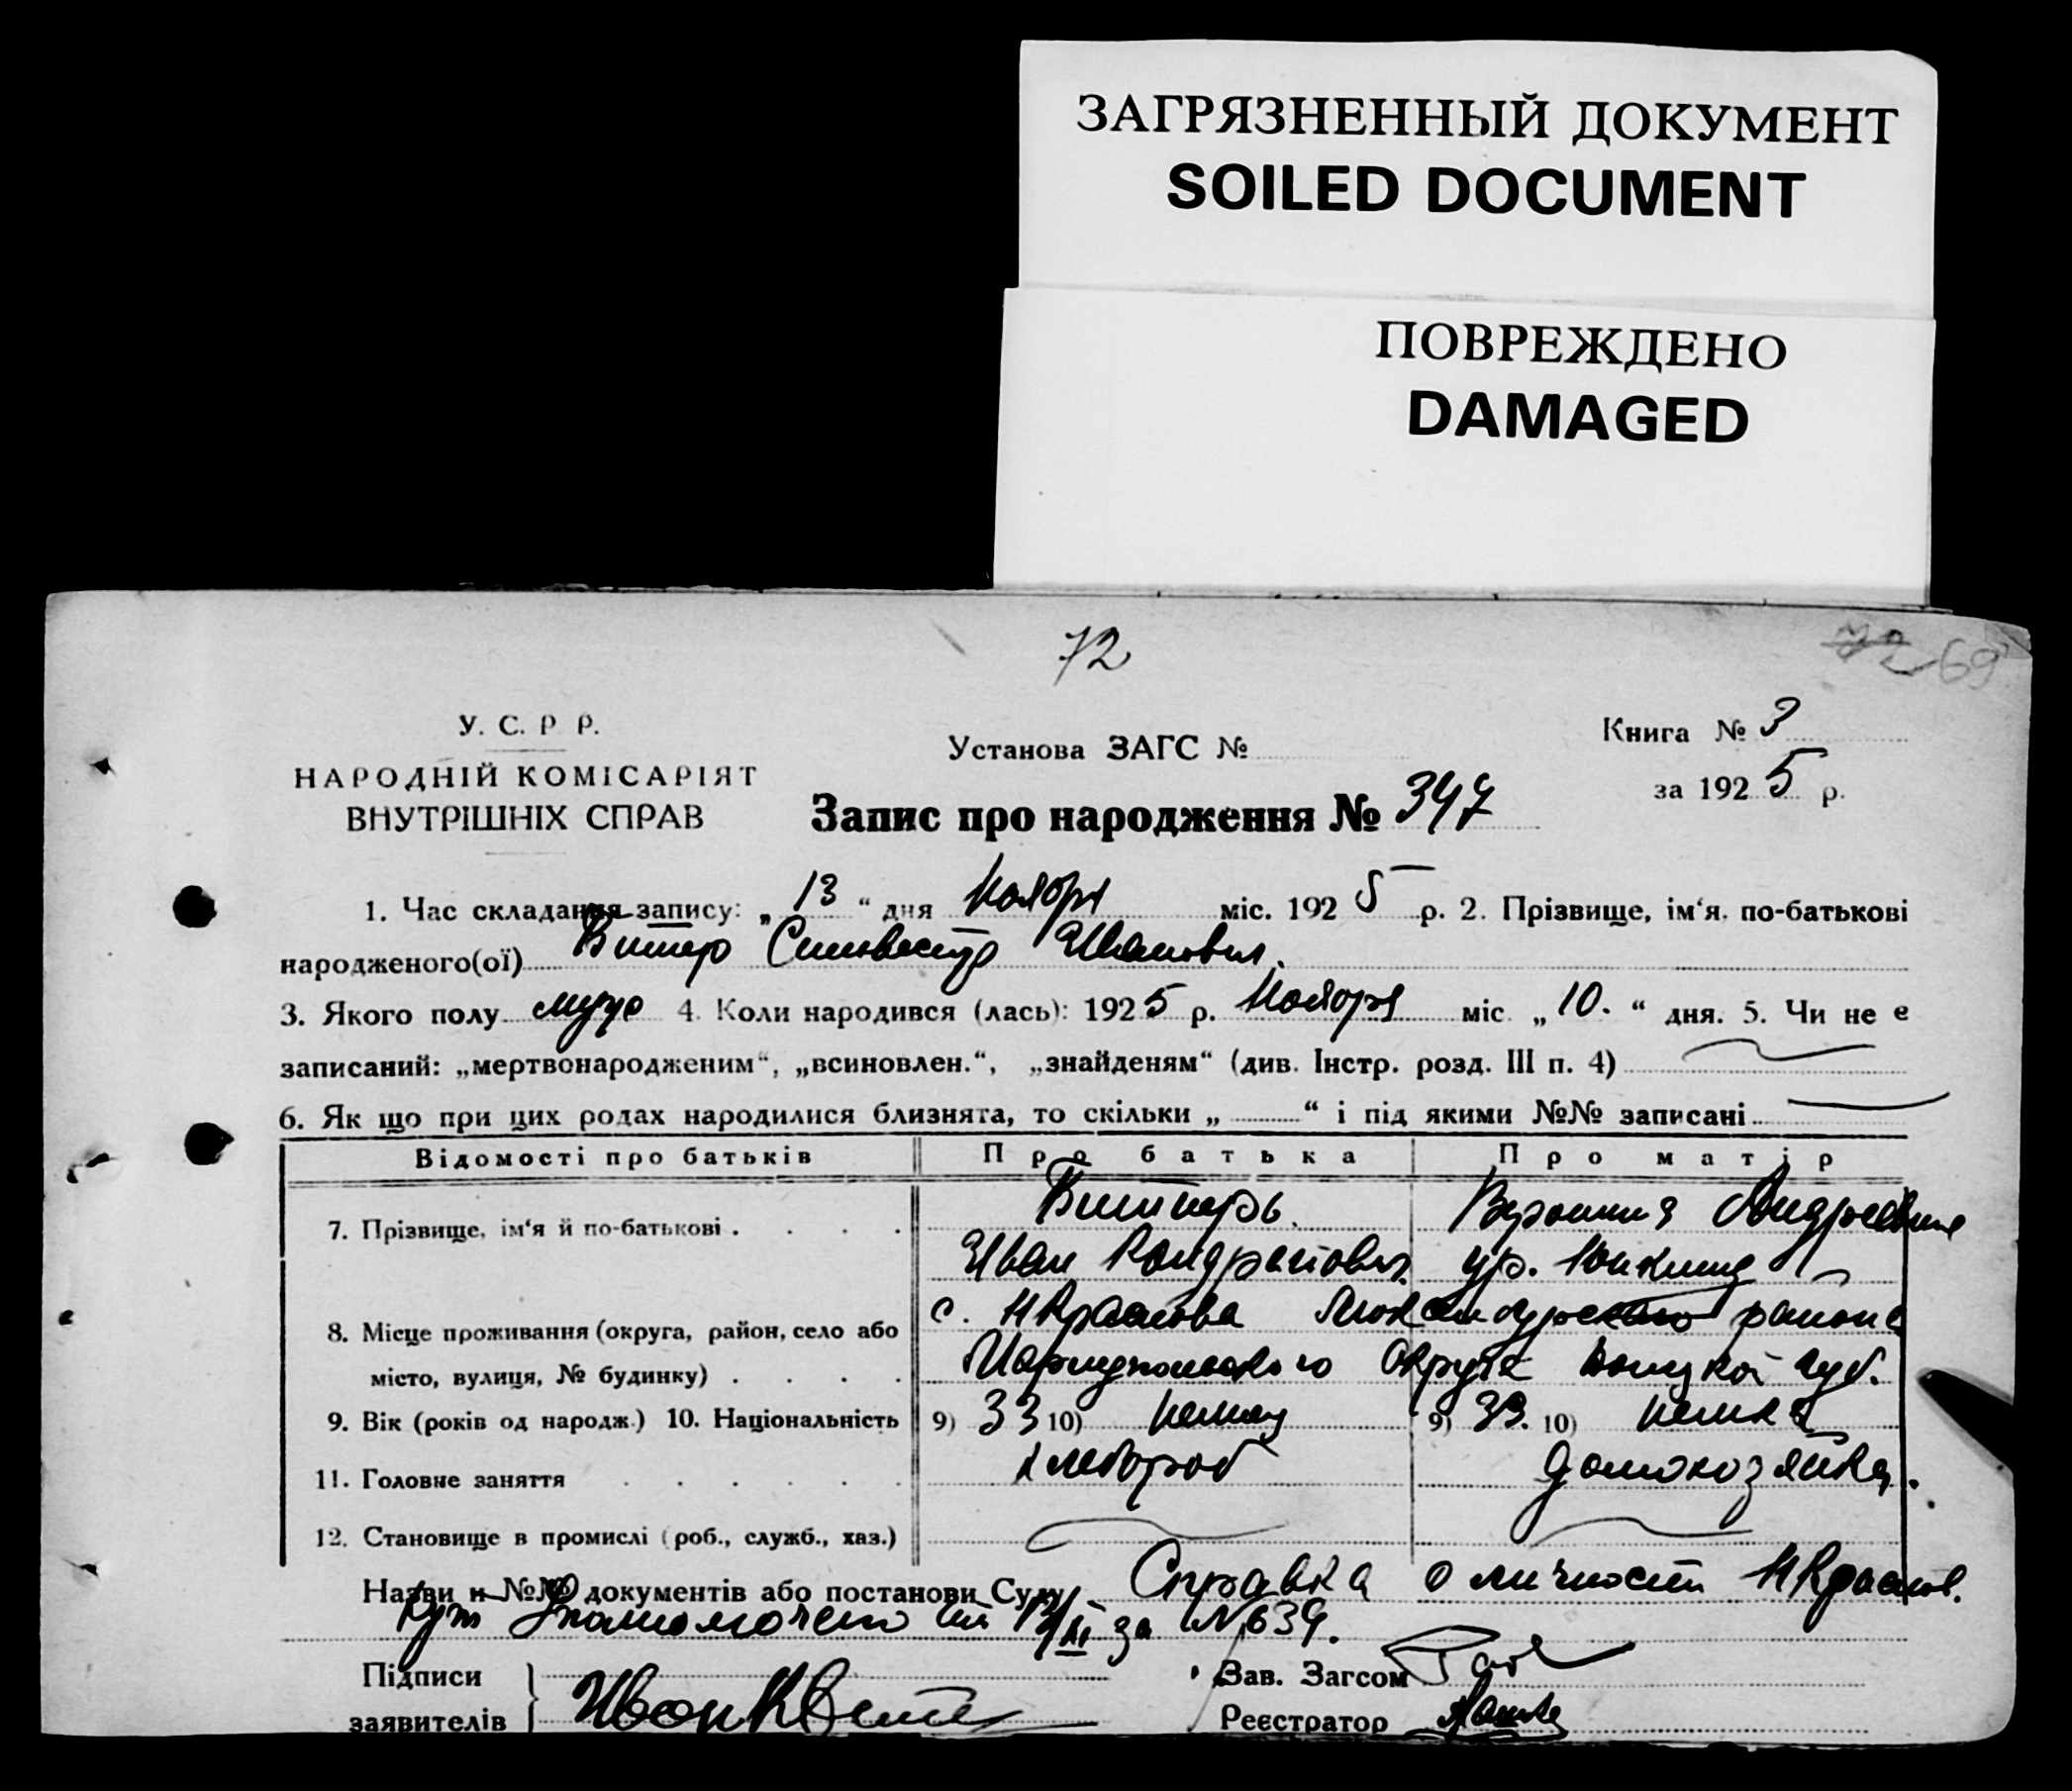 ЗАГРЯЗНЕННЫЙ ДОКУМЕНТ
SOILED DOCUMENT
ПОВРЕЖДЕНО
DAMAGED
72
72 69
У. С. Р Р.
НАРОДНІЙ КОМІСАРІЯТ
ВНУТРІШНІХ СПРАВ
Установа ЗАГС №
Книга № 3
за 1925 р.
Запис про народження № 347
1. Час складання запису: „ 13 “ дня Ноября міс. 1925 р. 2. Прізвище, ім‘я, по-батькові
народженого(ої) Сильвестр Иванович.
3. Якого полу муж 4. Коли народився (лась): 1925 р. Ноября міс „ 10. “ дня. 5. Чи не е
записаний: „мертвонародженим“, „всиновлен.“, „знайденям“ (див. Інстр. розд. III п. 4)
6. Як що при цих родах народилися близнята, то скільки „ “ і під якими №№ записані
Відомості про батьків Про батька Про матір
7. Прізвище, ім‘я й по-батькові . . . . Андреевна
Иван ур.
8. Місце проживання (округа, район, село або с. района
місто, вулиця, № будинку) . . . . Округа губ.
9. Вік (років од народж.) 10. Національність 9) 33 10) немец 9) 33. 10) немка
11. Головне заняття . . . . . хлебороб домохозяйка.
12. Становище в промислі (роб., служб., хаз.)
Назви й №№ документів або постанови Суду Справка о личности
за № 639.
Підписи
заявителів Иван К
Зав. Загсом
Реєстратор